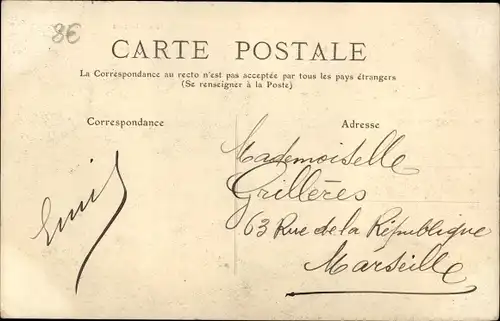 8€
CARTE POSTALE
La Correspondance au recto n'est pas acceptée par tous les pays étrangers
(Se renseigner à la Poste)
Correspondance
Adresse
Emil
Mademoiselle
Grillères
63 Rue de la République
Marseille